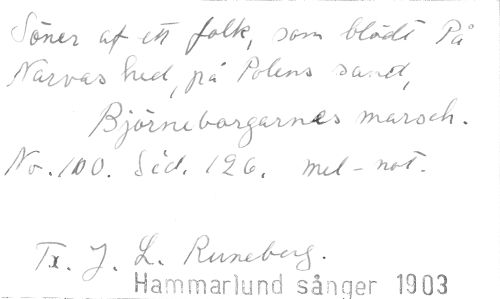 Söner af ett folk, som blödt På
Narvas hed, på Polens sand,
Björneborgarnes marsch.
No. 100. Sid. 126. mel-not.
Tx. J. L. Runeberg.
Hammarlund sånger 1903